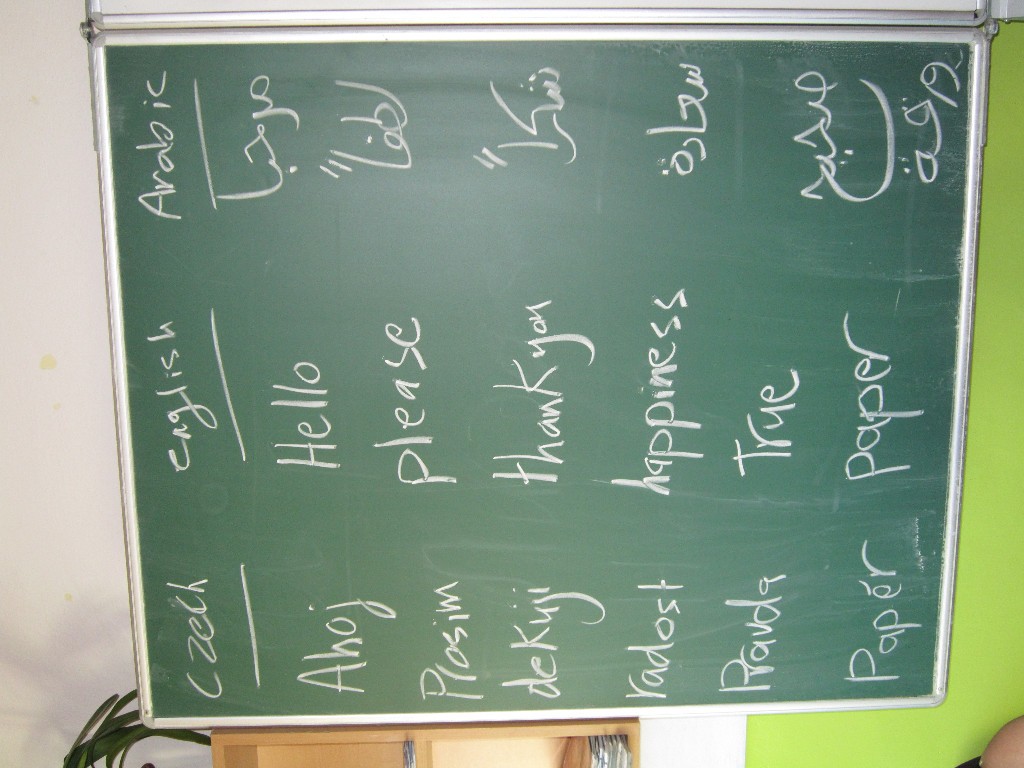 Czech english Arabic
Ahoj Hello مرحباً
Plosim please لطفاً
dekuji thank you شكراً
radost happiness سعادة
Pravda True
Popér paper ورقة